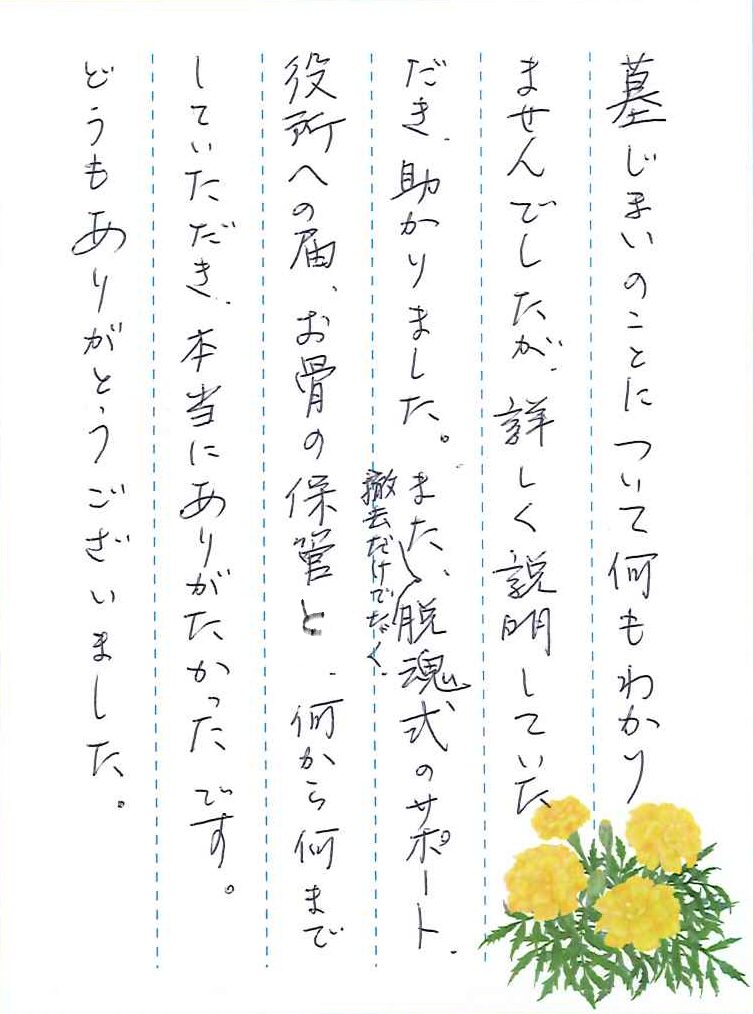 墓じまいのことについて何もわかり
ませんでしたが、詳しく説明していた
だき、助かりました。また、脱魂式のサポート、
撤去だけでなく、
役所への届、お骨の保管と、何から何まで
していただき、本当にありがたかったです。
どうもありがとうございました。